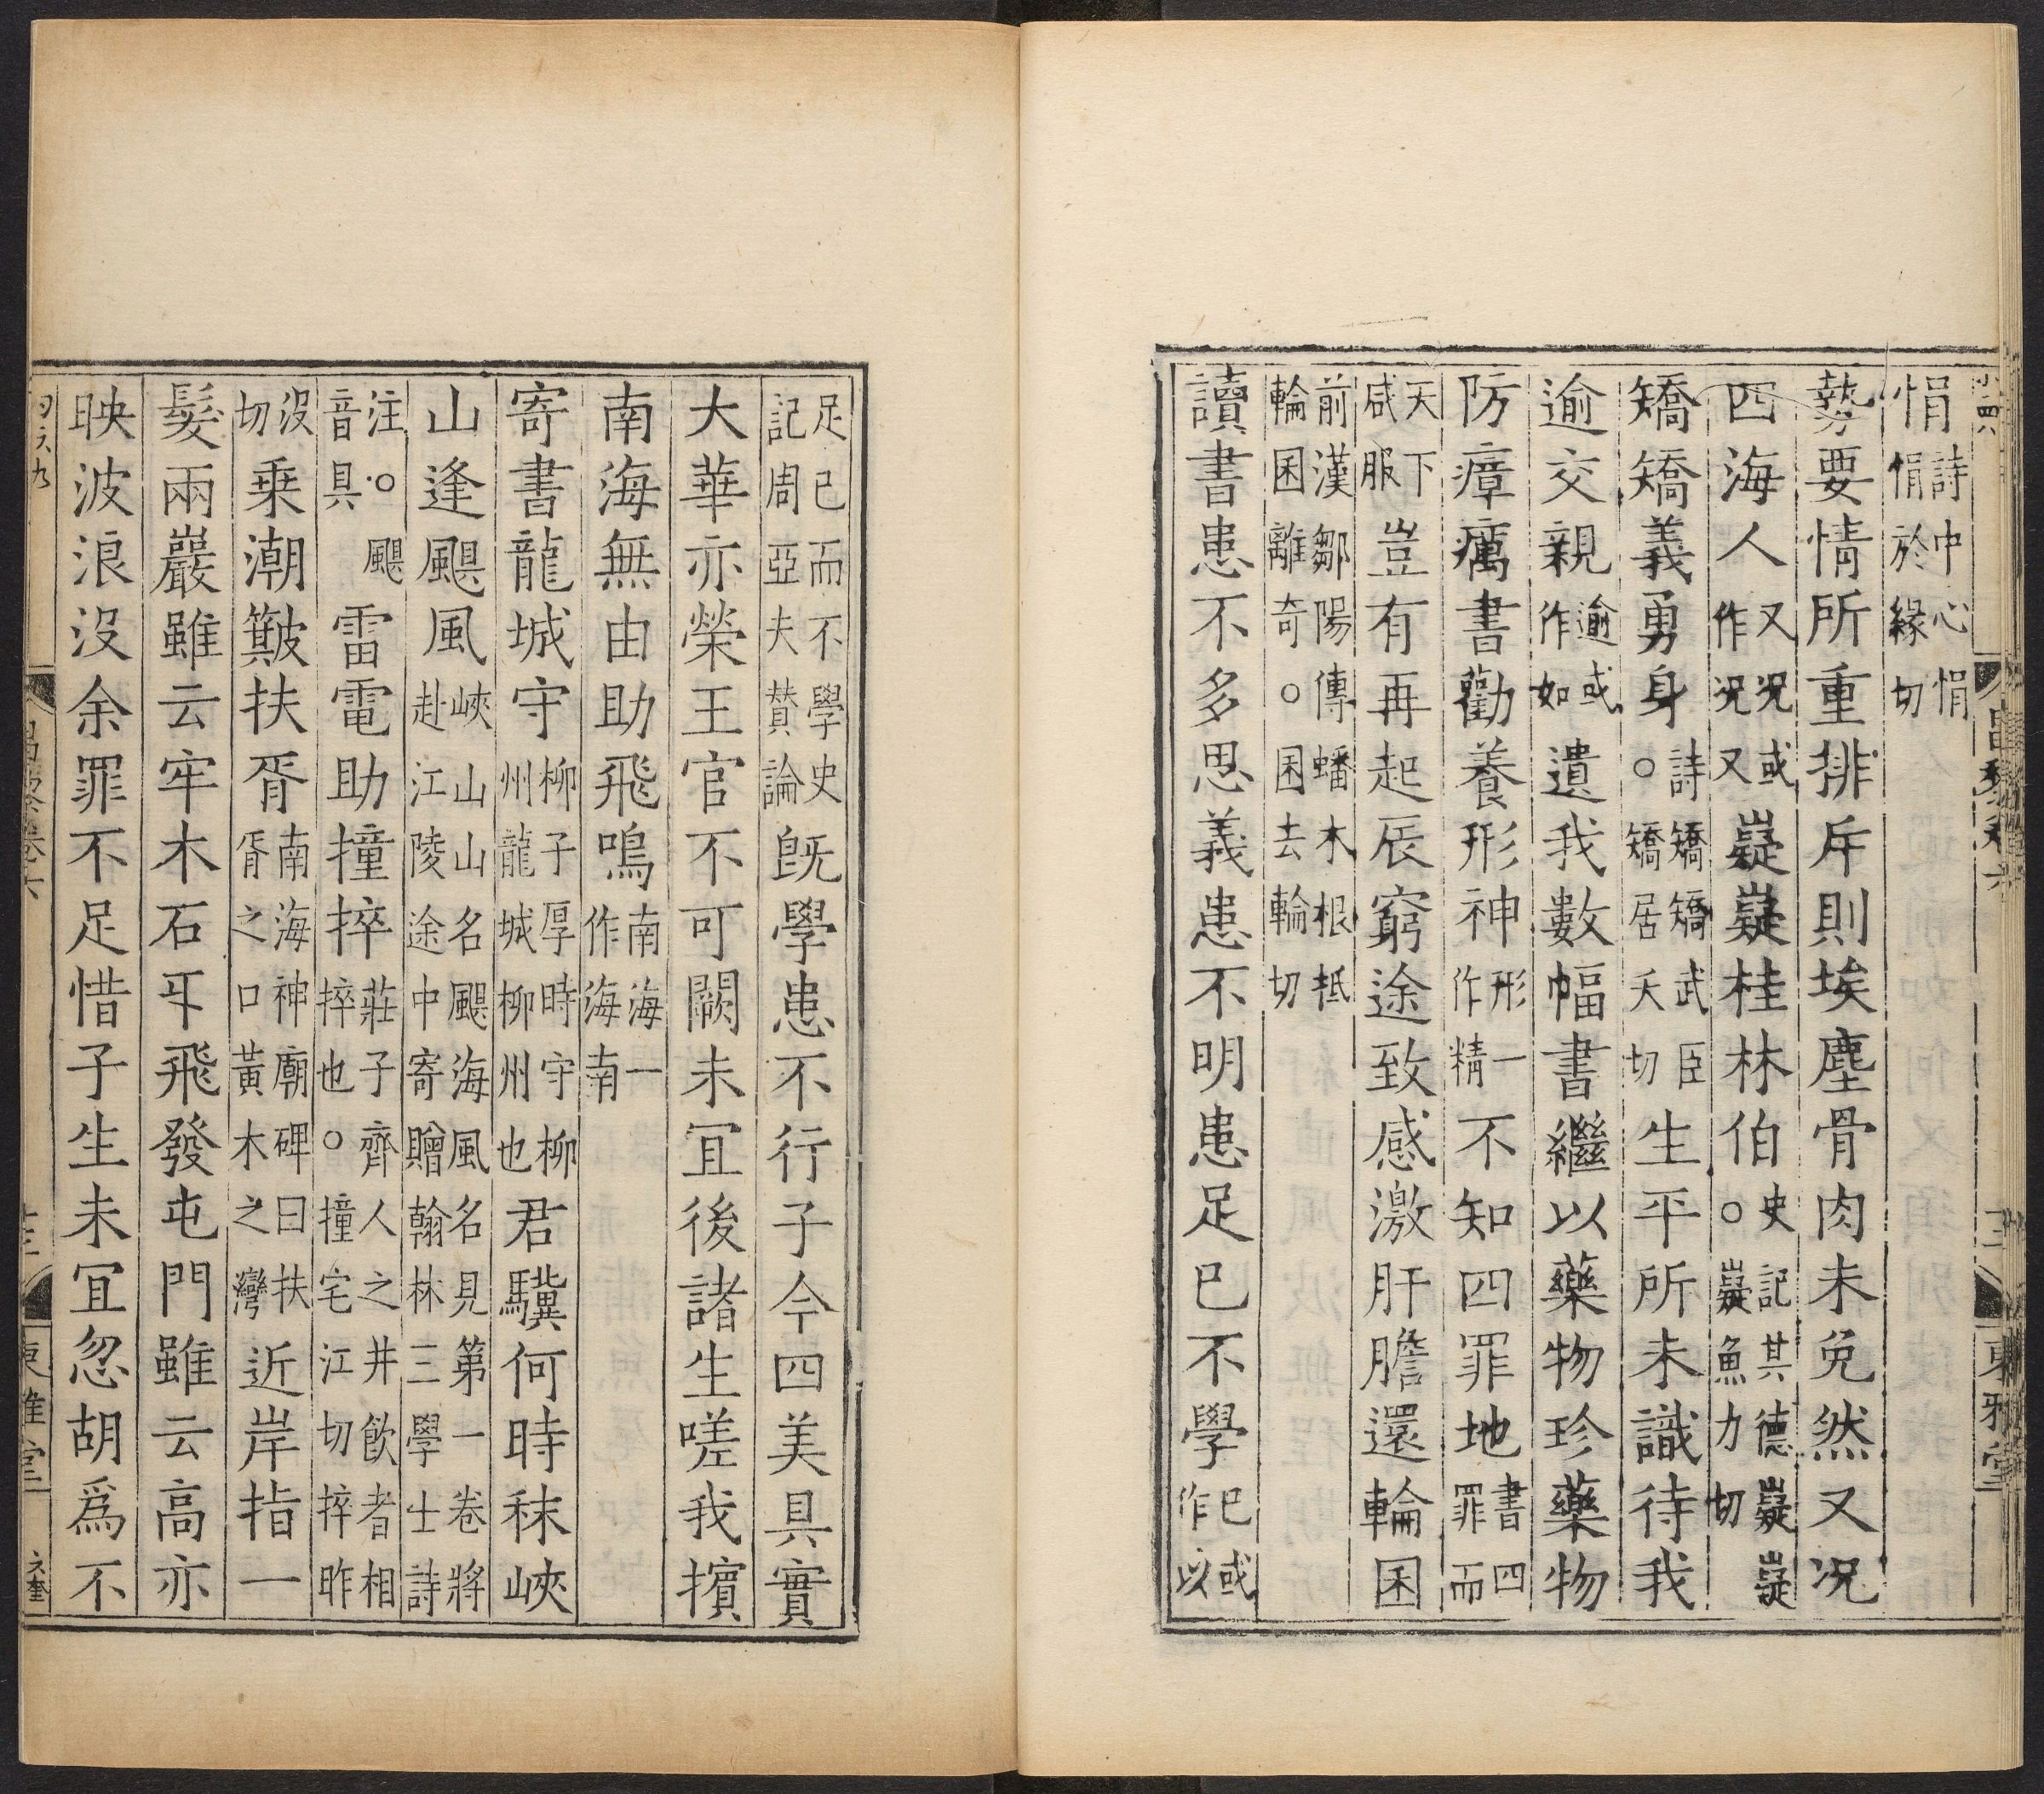 悁詩中心悁悁悁於緣切
勢要情所重排斥則埃塵骨肉未免然又况
四海人又况或作况又嶷嶷桂林伯史記其德嶷嶷○嶷魚力切
矯矯義勇身詩矯矯武臣○矯居夭切生平所未識待我
逾交親逾或作如遺我數幅書繼以藥物珍藥物
防瘴癘書勸養形神形一作精不知四罪地書四罪而
天下咸服豈有再起辰窮途致感激肝膽還輪囷
前漢鄒陽傳蟠木根柢輪囷離奇○囷去輪切
讀書患不多思義患不明患足已不學已或作以
足已而不學史記周亞夫賛論旣學患不行子今四美具實
大華亦榮王官不可闕未冝後諸生嗟我擯
南海無由助飛鳴南海一作海南
寄書龍城守柳子厚時守柳州龍城柳州也君驥何時秣峽
山逢颶風峽山山名颶海風名見第一卷將赴江陵途中寄贈翰林三學士詩
注○颶音具雷電助撞捽莊子齊人之井飲者相捽也○撞宅江切捽昨
沒切乗潮簸扶胥南海神廟碑曰扶胥之口黃木之灣近岸指一
髮兩巖雖云牢木石㸦飛發屯門雖云高亦
映波浪沒余罪不足惜子生未冝忽胡爲不
昌黎卷六
十三
東雅堂
昌黎卷六
東雅堂